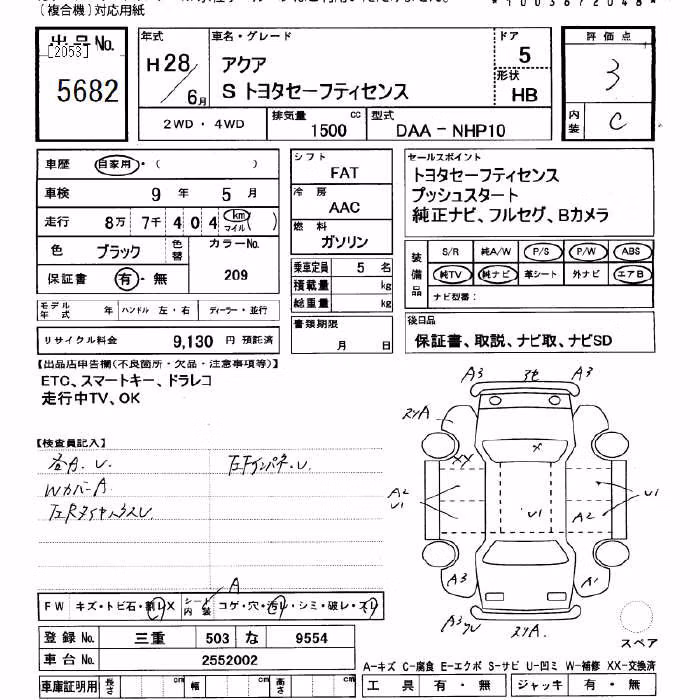 (複合機)対応用紙
出品No.
[2053]
5682
年式
H28/6月
車名・グレード
アクア
S トヨタセーフティセンス
ドア
5
形状
HB
評価点
3
内装
C
2WD・4WD
排気量
1500 cc
型式
DAA-NHP10
車歴 自家用・( )
車検 9年 5月
走行 8万 7千 4 0 4 km マイル( )
色 ブラック 色替
カラーNo.
209
保証書 有・無
モデル年式 年 ハンドル 左・右 ディーラー・並行
リサイクル料金 9,130 円 預託済
シフト
FAT
冷房
AAC
燃料
ガソリン
乗車定員 5 名
積載量 kg
総重量 kg
書類期限
月 日
セールスポイント
トヨタセーフティセンス
プッシュスタート
純正ナビ、フルセグ、Bカメラ
装備品
S/R 純A/W P/S P/W ABS
純TV 純ナビ 革シート 外ナビ エアB
ナビ型番:
後日品
保証書、取説、ナビ取、ナビSD
【出品店申告欄(不良箇所・欠品・注意事項等)】
ETC、スマートキー、ドラレコ
走行中TV、OK
【検査員記入】
各A.U.
WカバーA
左Fインパネ.U.
A3
A3
X
XX
A2
U1
U1
A2
U1
A3
A1
スペア
FW キズ・トビ石・割レX シート内装 コゲ・穴・汚レ・シミ・破レ・スレ
A
登録No. 三重 503 な 9554
車台No. 2552002
車庫証明用 長さ cm 幅 cm 高さ cm
A-キズ C-腐食 E-エクボ S-サビ U-凹ミ W-補修 XX-交換済
工具 有・無 ジャッキ 有・無